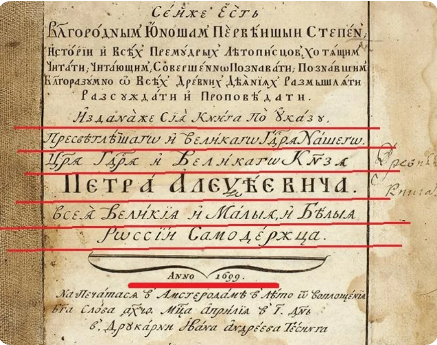 Сей же єсть
Благороднымъ Юношамъ Первѣиши Степен,
Історіи и всѣхъ Премудрыхъ Лѣтописцов, хотящим
Читати, Читающим, Совершенно Познавати; Познавшим
Благоразумно ѿ Всѣхъ Древних Дѣаніях Размышлѧти
Разсуждати и Проповѣдати.
Изданаже Сіѧ Книга По указу,
Пресвѣтлѣшагѡ и великагѡ Гдрѧ Нашегѡ,
Црѧ Гдрѧ и Великагѡ Кнѕѧ
Петра Алеѯѣевича.
всеѧ Великіѧ и Малыѧ, и Бѣлыѧ
Рѡссіи Самодержца.
Древнѧ
Книга
Anno 1699.
Напечатасѧ в Амстеродамѣ в Лѣто ѿ воплощеніѧ
бга Слова Мца Апріліѧ в дн҃ь
в Друкарни Ивана Андреева Тесинга